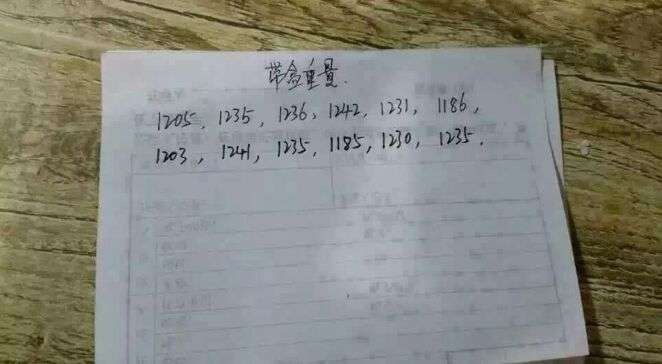 带盒重量.
1205, 1235, 1236, 1242, 1231, 1186,
1203, 1241, 1235, 1185, 1230, 1235.